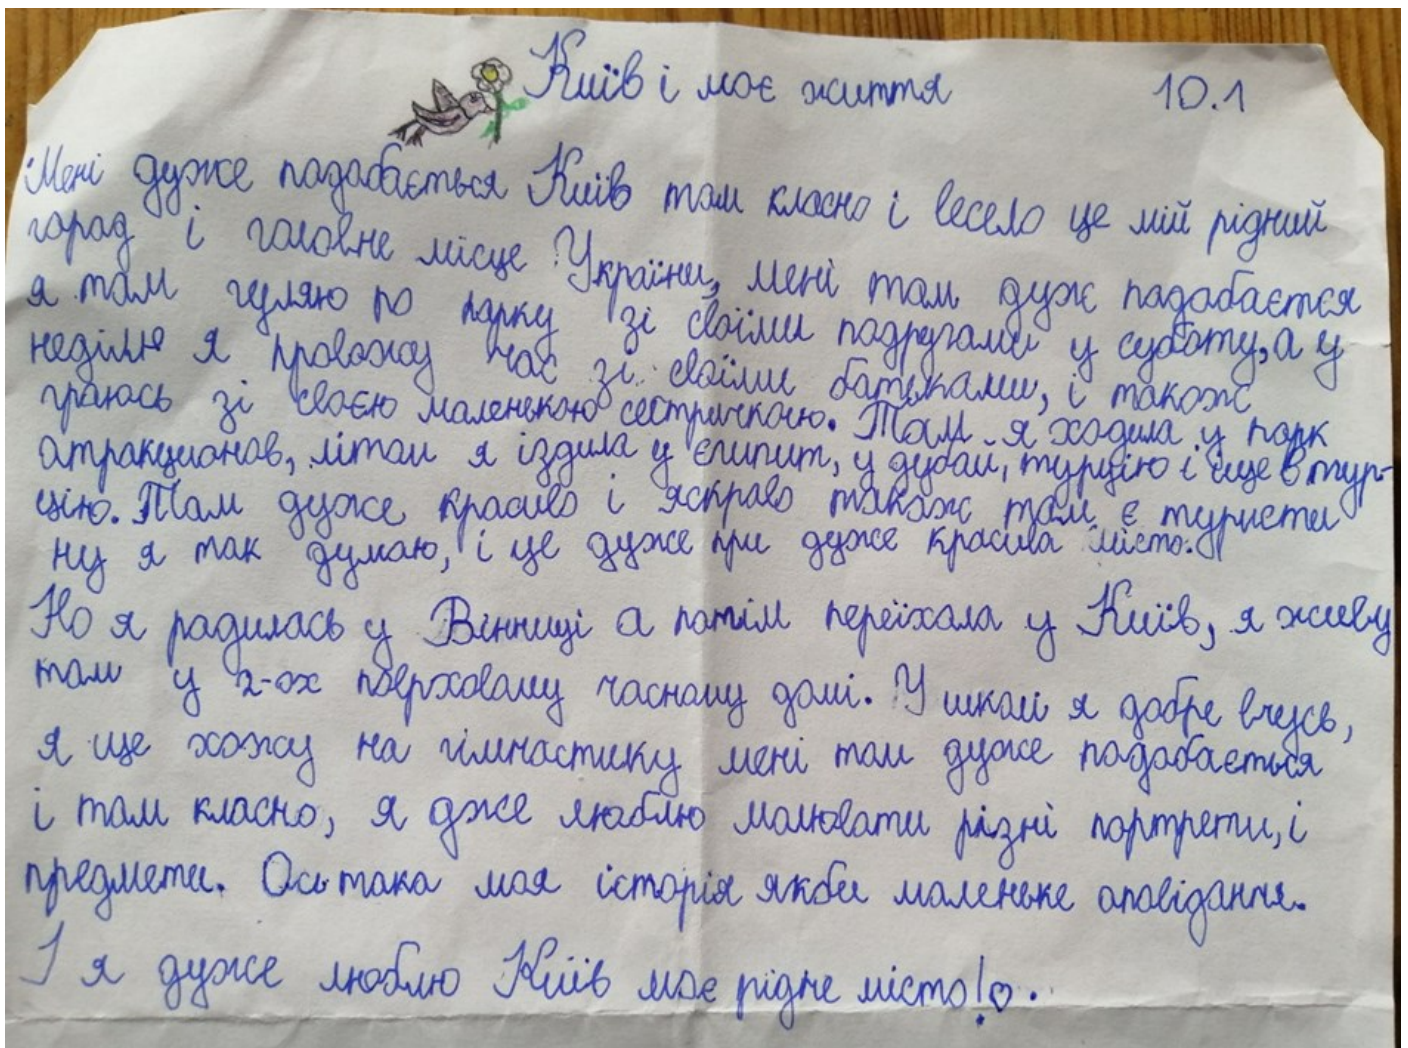 Київ і моє життя 10.1
Мені дуже падабається Київ там класно і весело це мій рідний
город і головне місце України, мені там дуж падабаєтся
я там гуляю по парку зі своїми подругами у суботу, а у
неділю я провожу час зі своїми батьками, і також
граюсь зі своєю маленькою сестричкою. Там я ходила у парк
атракционов, літом я іздила у єгипит, у дубаи, турцію і ище в тур-
цію. Там дуже красиво і яскраво також там є туристи
ну я так думаю, і це дуже при дуже красива місто.
Но я радилась у Вінниці а потім переїхала у Київ, я живу
там у 2-ох поерховому часному домі. У школи я добре вчусь,
я ще хожу на гімнастику мені там дуже падабається
і там класно, я дже люблю малювати різні портрети, і
предмети. Ось така моя історія якби маленьке оповідання.
І я дуже люблю Київ моє рідне місто!♡.